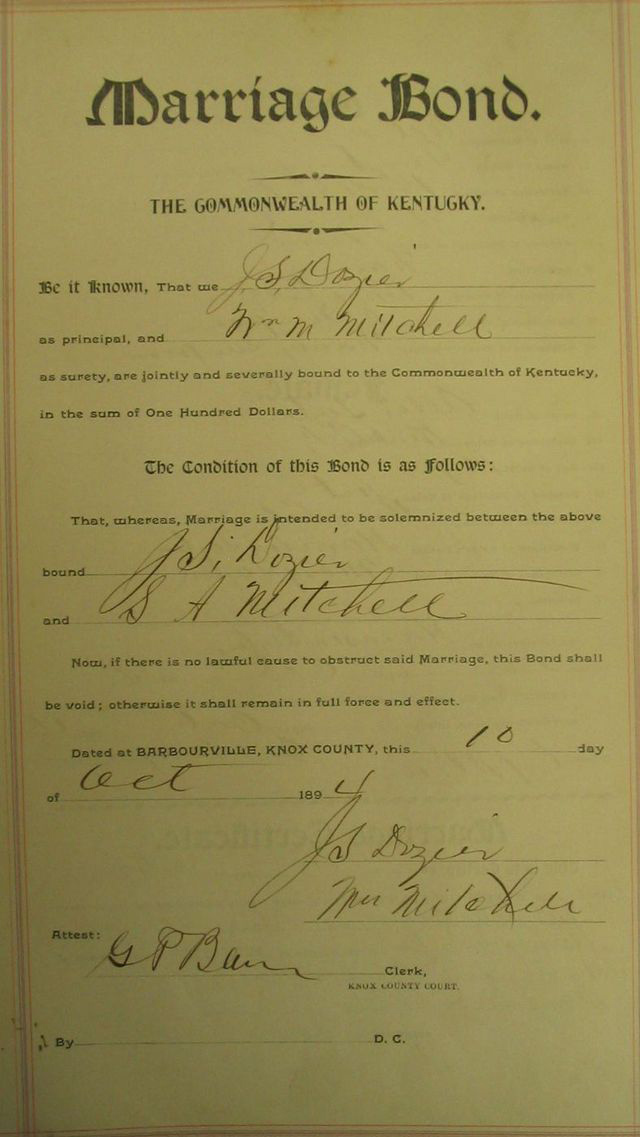 Marriage Bond.
THE COMMONWEALTH OF KENTUCKY.
Be it Known, That we J. S. Dozier
as principal, and Wm M Mitchell
as surety, are jointly and severally bound to the Commonwealth of Kentucky,
in the sum of One Hundred Dollars.
The Condition of this Bond is as Follows:
That, whereas, Marriage is intended to be solemnized between the above
bound J S, Dozier
and S A Mitchell
Now, if there is no lawful cause to obstruct said Marriage, this Bond shall
be void; otherwise it shall remain in full force and effect.
Dated at BARBOURVILLE, KNOX COUNTY, this 10 day
of Oct 1894
J S Dozier
Wm Mitchell
Attest:
G P Clerk,
KNOX COUNTY COURT.
By D. C.